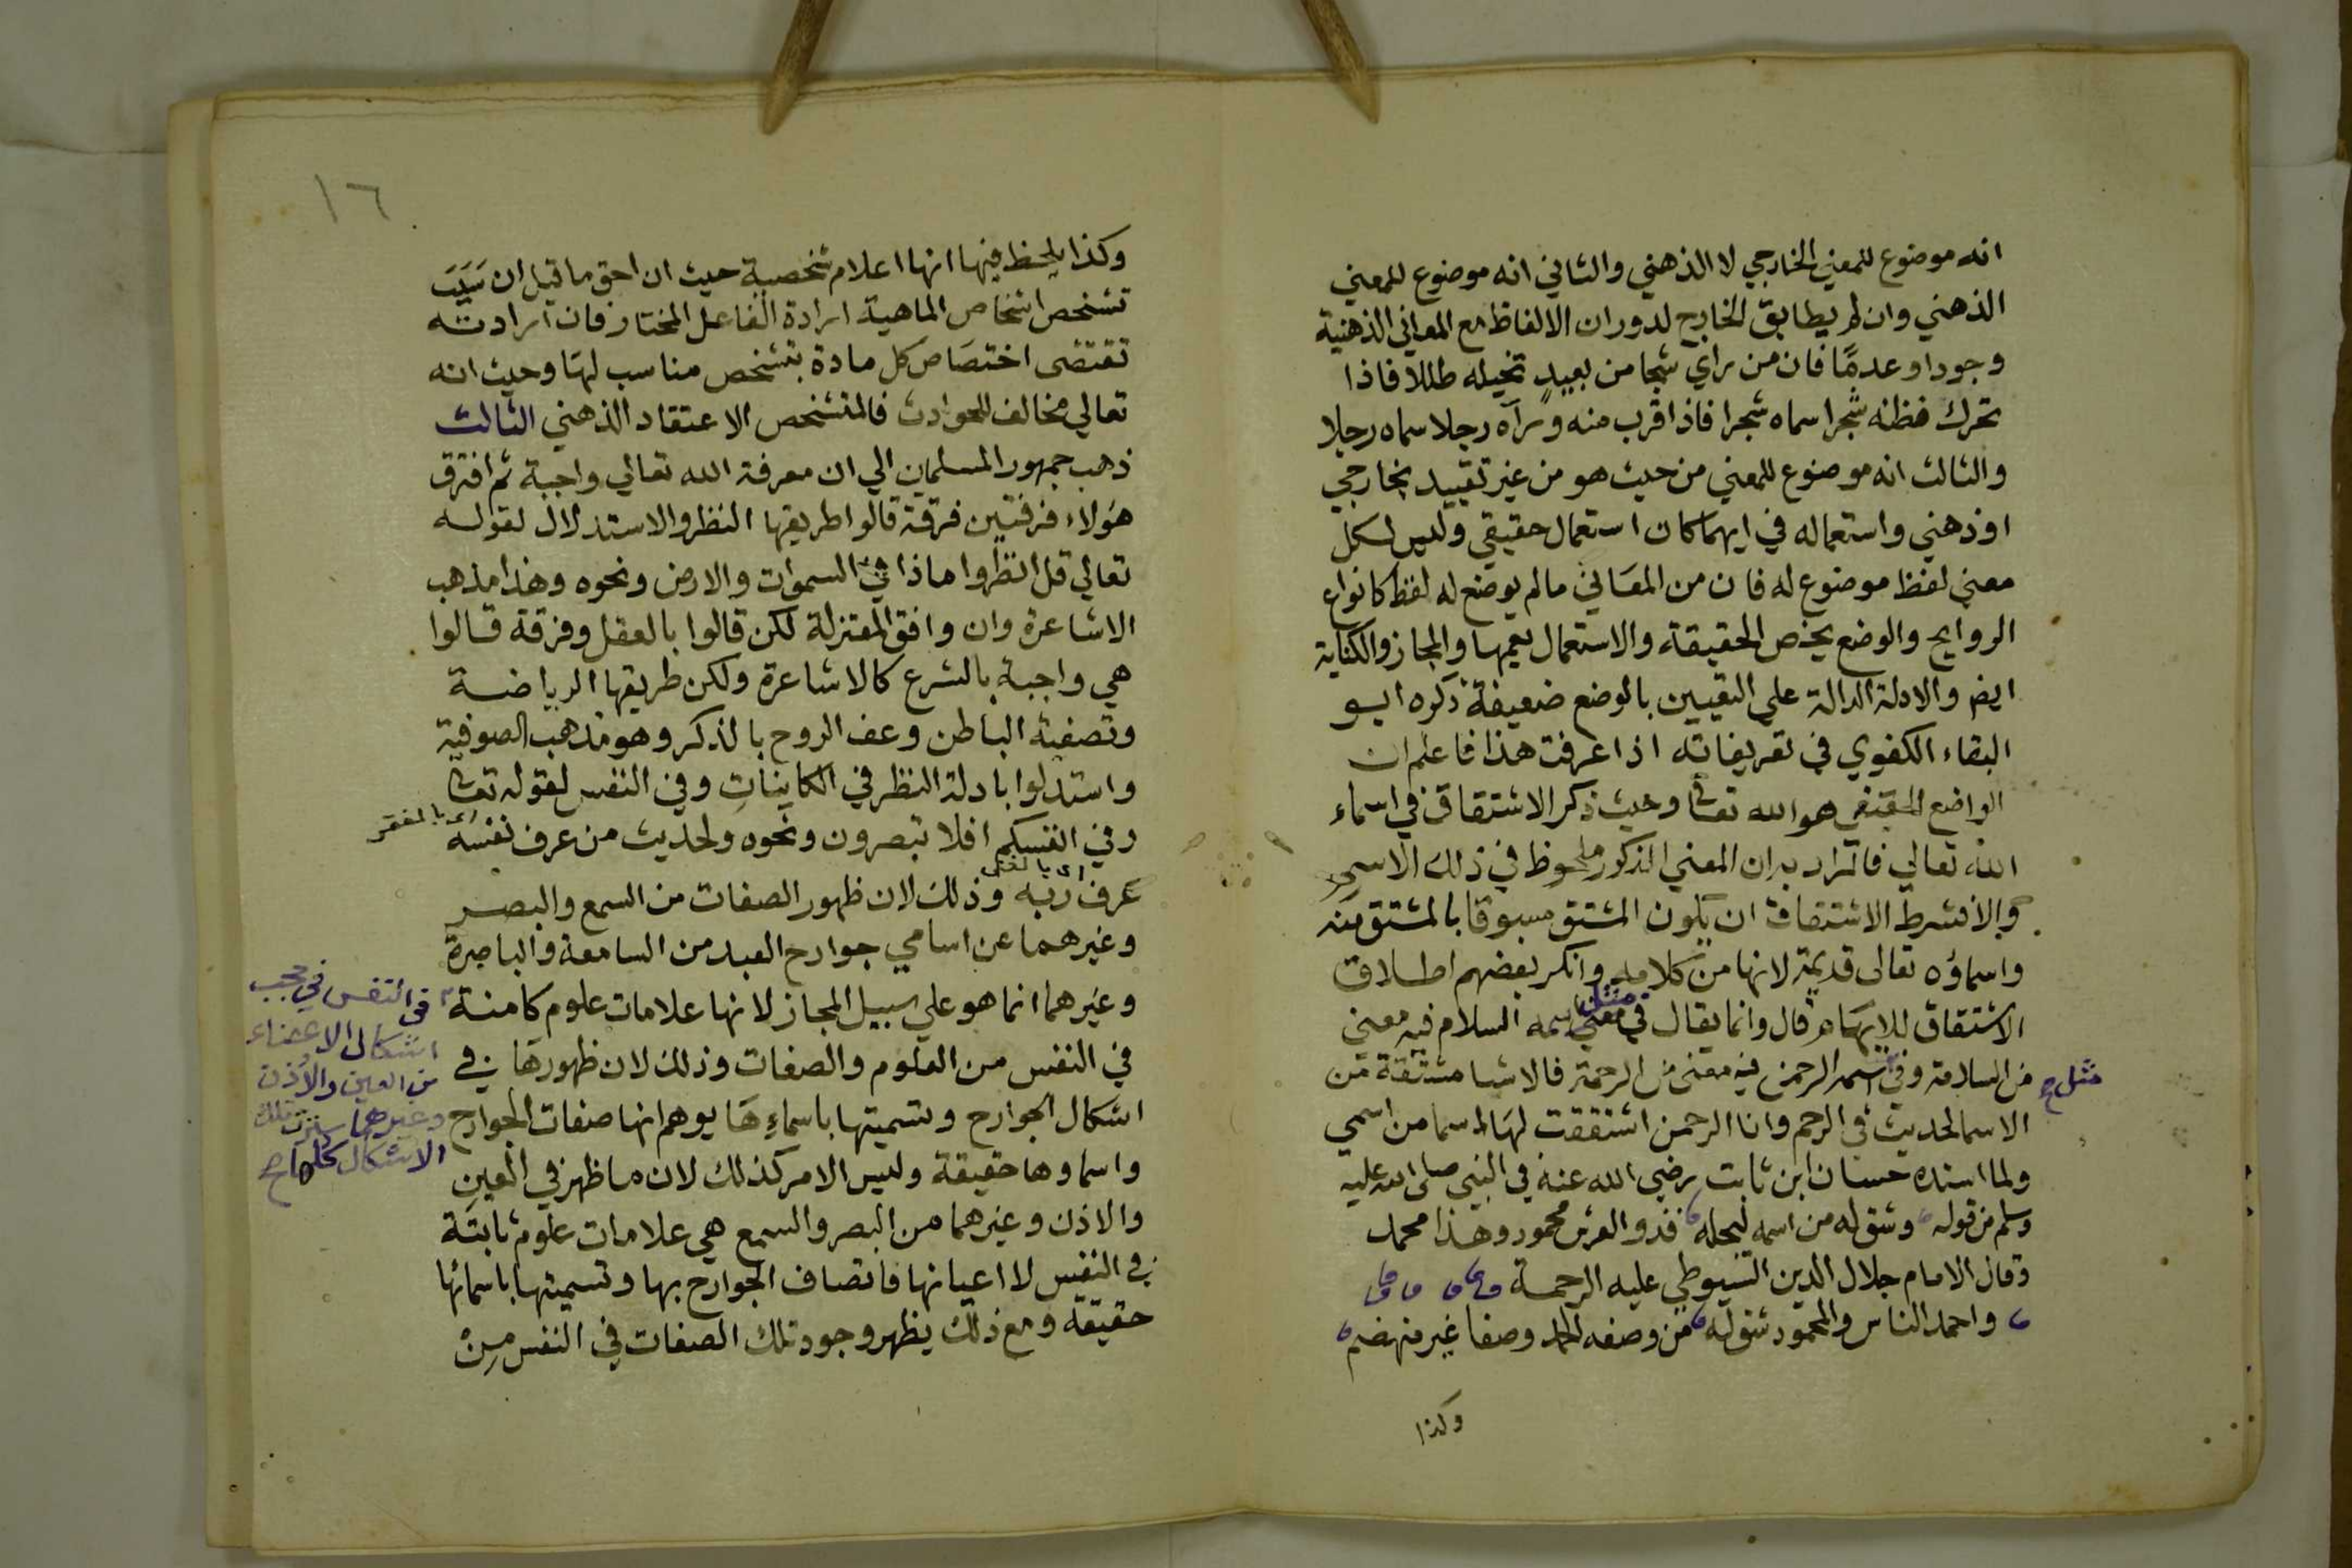 انه موضوع للمعني الخارجي لا الذهني والثاني انه موضوع للمعني
الذهني وان لم يطابق الخارج لدوران الالفاظ مع المعاني الذهنية
وجودا وعدمًا فان من راي شبحا من بعيدٍ تخيله طللا فاذا
تحرك فظنه شجرا سماه شجرا فاذا قرب منه ورآه رجلا سماه رجلا
والثالث انه موضوع للمعني من حيث هو من غير تقييد بخارجي
او ذهني واستعماله في ايهما كان استعمال حقيقي وليس لكل
معني لفظ موضوع له فان من المعاني ما لم يوضع له لفظ كانواع
الروايح والوضع يخص الحقيقة والاستعمال يعمها والمجاز والكناية
ايضا والادلة الدالة علي التعيين بالوضع ضعيفة ذكره ابو
البقاء الكفوي في تعريفاته اذا عرفت هذا فاعلم ان
الواضع الحقيقي هو الله تعا وحيث ذكر الاشتقاق في اسماء
الله تعالي فالمراد به ان المعني المذكور ملحوظ في ذلك الاسم
والا فشرط الاشتقاق ان يكون المشتق مسبوقا بالمشتق منه
واسماؤه تعالى قديمة لانها من كلامه وانكر بعضهم اطلاق
الاشتقاق للايهام قال وانما يقال في مثل اسمه السلام فيه معني
من السلامة وفي اسمه الرحمن فيه معنى من الرحمة فالاشيا مشتقة من
مثل صح
الاسما لحديث في الرحم وانا الرحمن اشتققت لها اسما من اسمي
ولما انشده حسان ابن ثابت رضي الله عنه في النبي صلى الله عليه
وسلم من قوله وشق له من اسمه ليجله فذو العرش محمود وهذا محمد
وقال الامام جلال الدين السيوطي عليه الرحمة
واحمد الناس والمحمود شق له من وصفه الحمد وصفا غير منهضم
وكذا
١٦
وكذا يلحظ فيها انها اعلام شخصية حيث ان احق ما قيل ان سبب
تشخص اشخاص الماهية ارادة الفاعل المختار فان ارادته
تقتضى اختصاص كل مادة بتشخص مناسب لها وحيث انه
تعالي مخالف للحوادث فالمتشخص الاعتقاد الذهني الثالث
ذهب جمهور المسلمين الي ان معرفة الله تعالي واجبة ثم افترق
هؤلاء فرقتين فرقة قالوا طريقها النظر والاستدلال لقوله
تعالي قل انظروا ماذا في السموات والارض ونحوه وهذا مذهب
الاشاعرة وان وافق المعتزلة لكن قالوا بالعقل وفرقة قالوا
هي واجبة بالشرع كالاشاعرة ولكن طريقها الرياضة
وتصفية الباطن وعف الروح بالذكر وهو مذهب الصوفية
واستدلوا بادلة النظر في الكاينات وفي النفس لقوله تعا
وفي انفسكم افلا تبصرون ونحوه ولحديث من عرف نفسه
اى بالفقر
عرف ربه وذلك لان ظهور الصفات من السمع والبصر
اى بالغنى
وغيرهما عن اسامي جوارح العبد من السامعة والباصرة
وغيرهما انما هو علي سبيل المجاز لانها علامات علوم كامنة
في النفس من العلوم والصفات وذلك لان ظهورها في
اشكال الجوارح وتسميتها باسماءِها يوهم انها صفات الجوارح
واسماوها حقيقة وليس الامر كذلك لان ما ظهر في العين
والاذن وغيرهما من البصر والسمع هي علامات علوم ثابتة
في النفس لا اعيانها فاتصاف الجوارح بها وتسميتها باسمائها
حقيقة ومع ذلك يظهر وجود تلك الصفات في النفس من
فى النفس في حجب
اشكال الاعضاء
من العين والاذن
وغيرهما تلك
الاشكال كلها صح